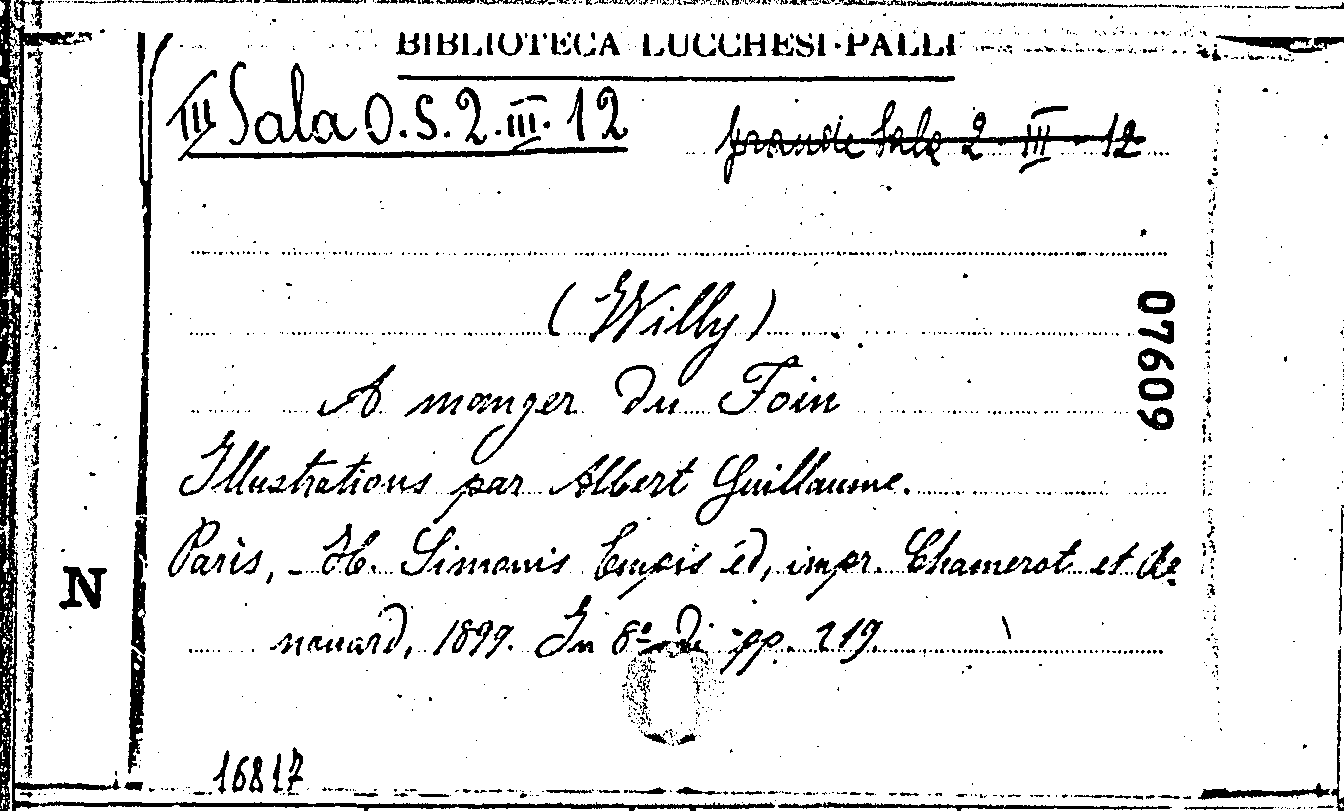 BIBLIOTECA LUCCHESI-PALLI
III Sala O.S.2.III.12
grande Sala 2 III 12
(Willy)
07609
A manger du Foin
Illustrations par Albert Guillaume.
Paris, - H. Simonis Empis éd, impr. Chamerot et Re=
nouard, 1899. In 8º di pp. 219.
N
16817